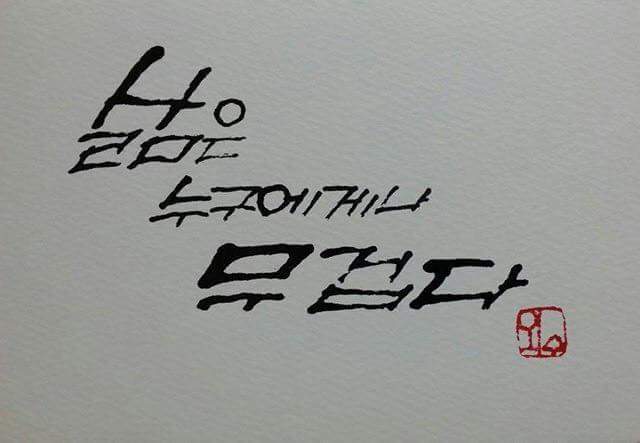 삶은
누구에게나
무겁다